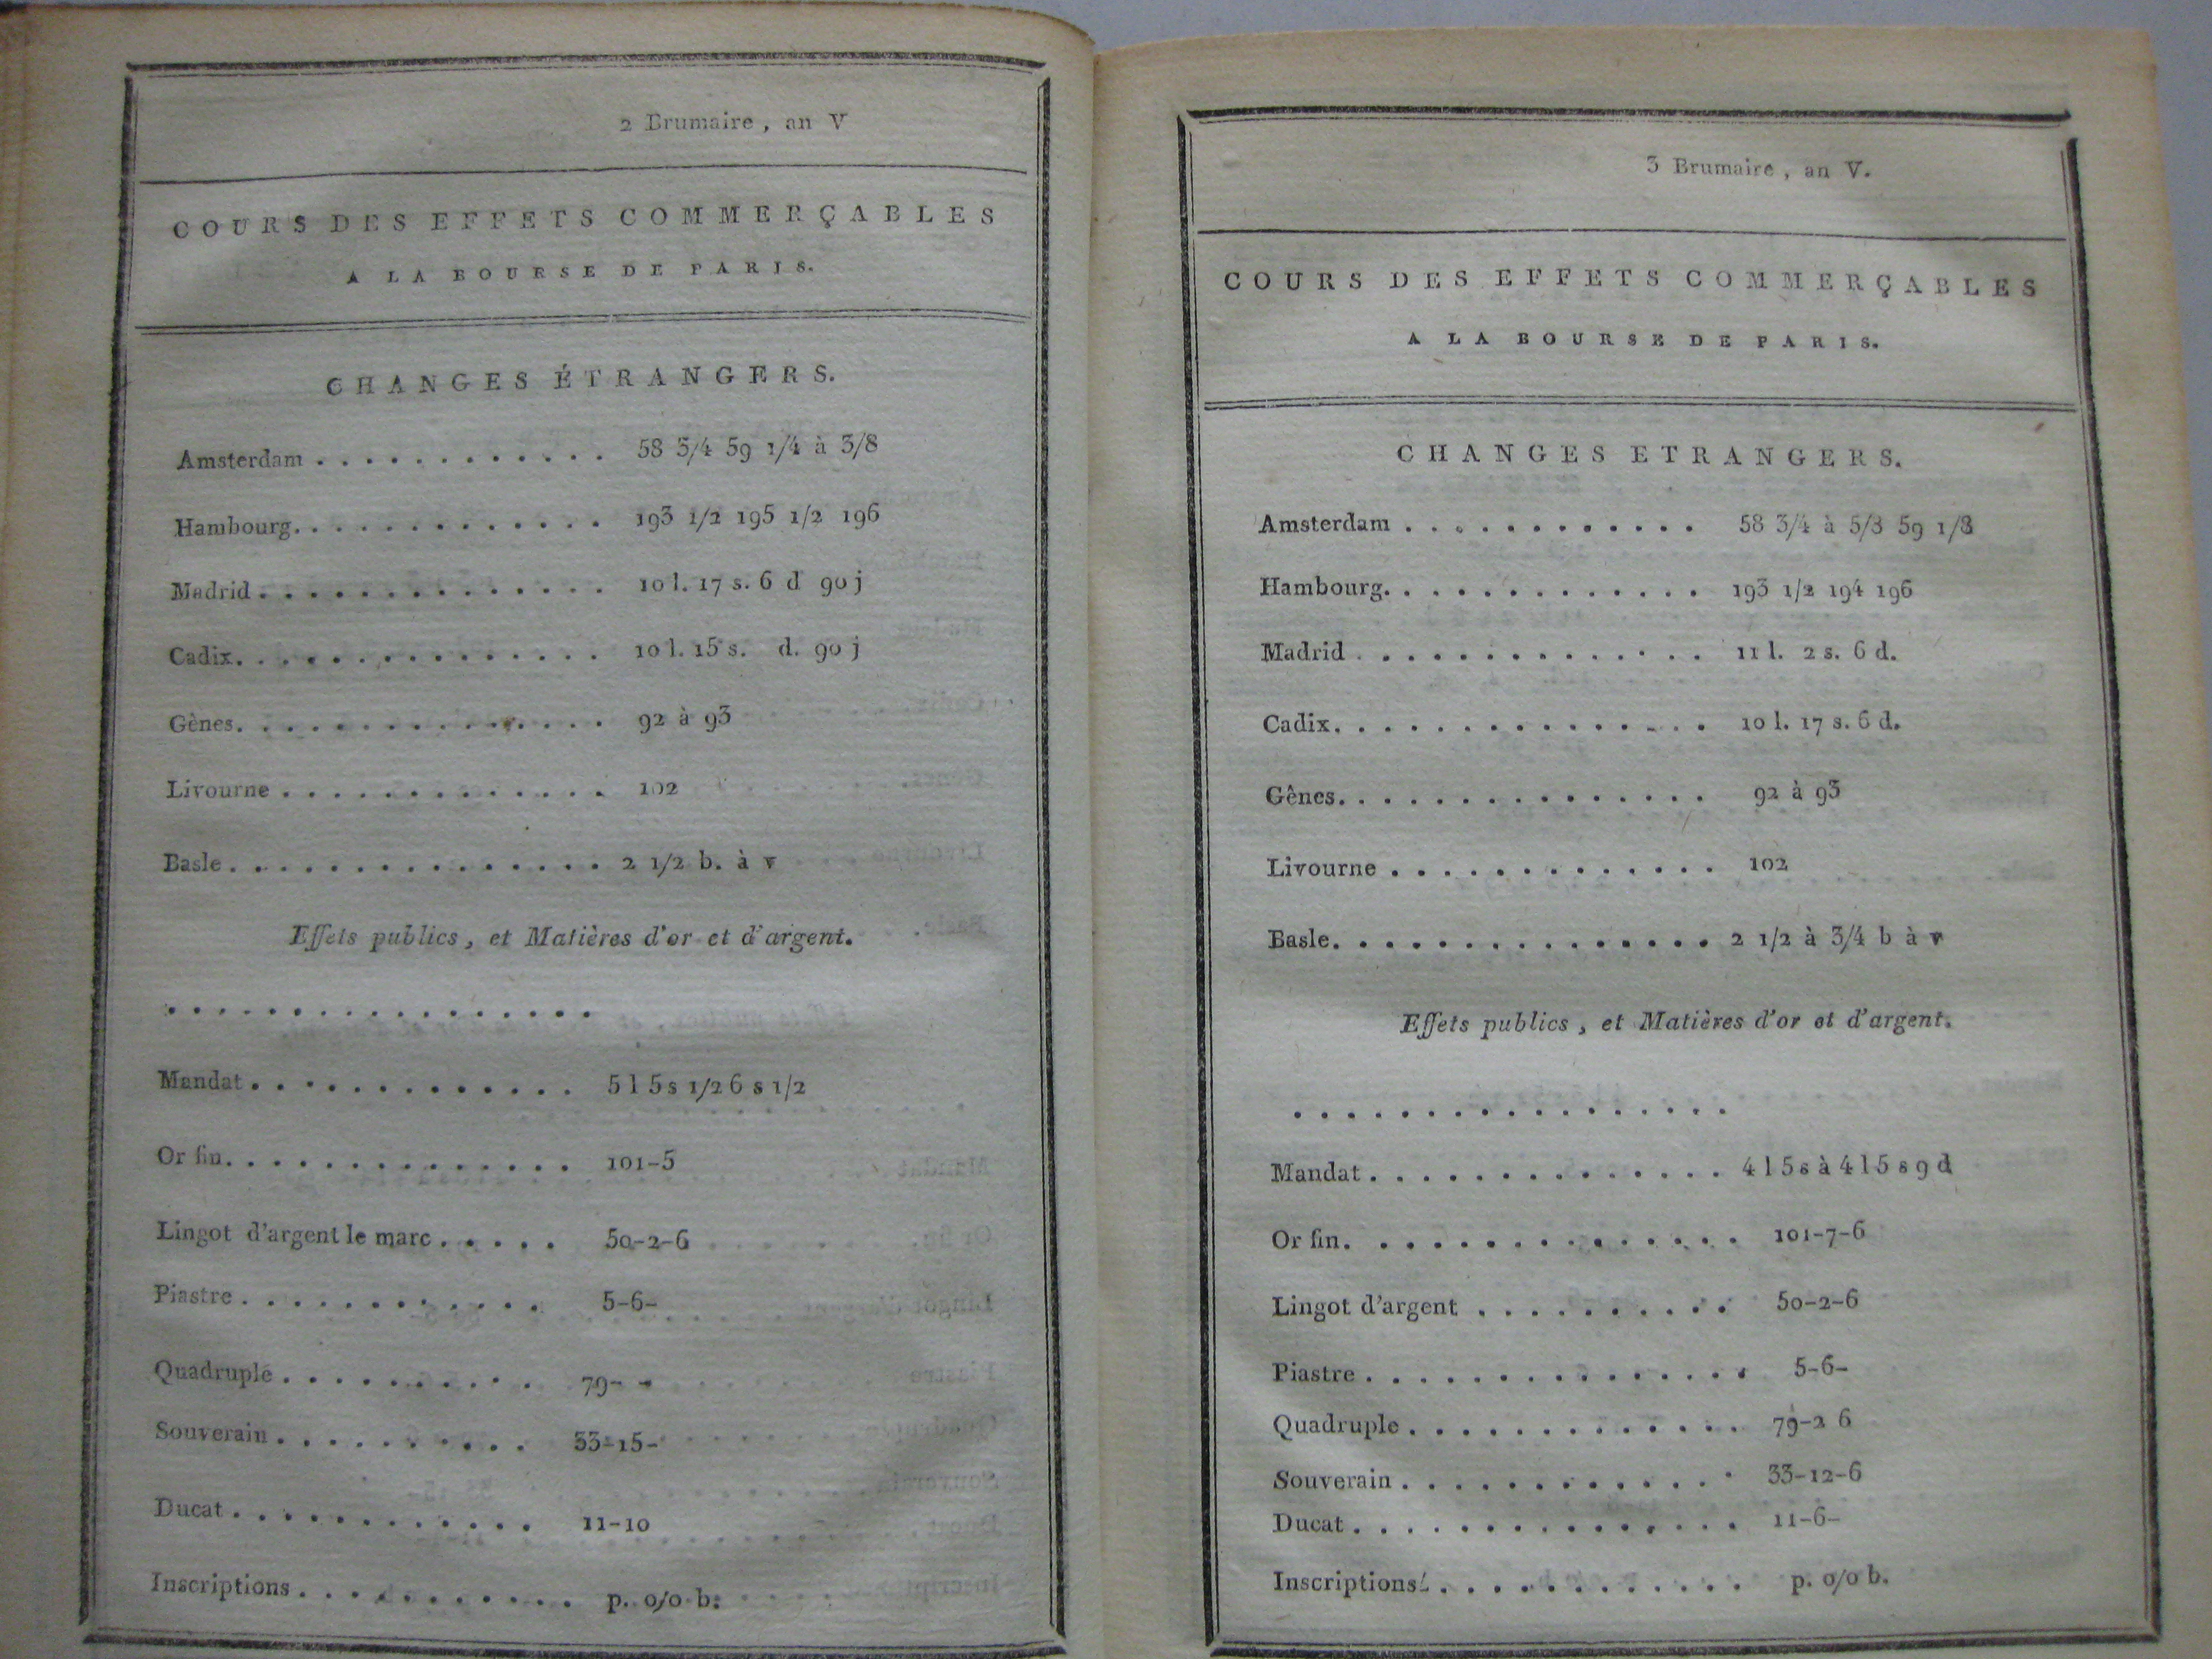 2 Brumaire, an V
COURS DES EFFETS COMMERÇABLES
A LA BOURSE DE PARIS.
CHANGES ÉTRANGERS.
Amsterdam . . . . . . . . . . . . 58 3/4 59 1/4 à 3/8
Hambourg. . . . . . . . . . . . . 193 1/2 195 1/2 196
Madrid . . . . . . . . . . . . . . 10 l. 17 s. 6 d 90 j
Cadix. . . . . . . . . . . . . . . 10 l. 15 s. d. 90 j
Gènes. . . . . . . . . . . . . . . 92 à 93
Livourne . . . . . . . . . . . . . 102
Basle . . . . . . . . . . . . . . . 2 1/2 b. à v
Effets publics, et Matières d'or et d'argent.
. . . . . . . . . . . . . . . . .
Mandat . . . . . . . . . . . . . 5 l 5 s 1/2 6 s 1/2
Or fin. . . . . . . . . . . . . . 101-5
Lingot d'argent le marc . . . . . 50-2-6
Piastre . . . . . . . . . . . . 5-6-
Quadruple . . . . . . . . . . 79- -
Souverain . . . . . . . . . . 33-15-
Ducat . . . . . . . . . . . . 11-10
Inscriptions . . . . . . . . . . . p. 0/0 b.
3 Brumaire, an V.
COURS DES EFFETS COMMERÇABLES
A LA BOURSE DE PARIS.
CHANGES ETRANGERS.
Amsterdam . . . . . . . . . . . 58 3/4 à 5/8 59 1/8
Hambourg. . . . . . . . . . . . . 193 1/2 194 196
Madrid . . . . . . . . . . . . . 11 l. 2 s. 6 d.
Cadix. . . . . . . . . . . . . . . 10 l. 17 s. 6 d.
Gênes. . . . . . . . . . . . . . . 92 à 93
Livourne . . . . . . . . . . . . . 102
Basle. . . . . . . . . . . . . . . 2 1/2 à 3/4 b à v
Effets publics, et Matières d'or et d'argent.
. . . . . . . . . . . . . . . . .
Mandat . . . . . . . . . . . . . . 4 l 5 s à 4 l 5 s 9 d
Or fin. . . . . . . . . . . . . . . 101-7-6
Lingot d'argent . . . . . . . . . . 50-2-6
Piastre . . . . . . . . . . . . . . . 5-6-
Quadruple . . . . . . . . . . . . . 79-2 6
Souverain . . . . . . . . . . . . . 33-12-6
Ducat . . . . . . . . . . . . . . . 11-6-
Inscriptions . . . . . . . . . . . . p. 0/0 b.